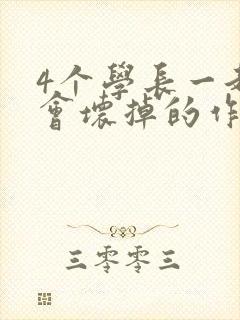 4个學长一
會壞掉的作
三零零三